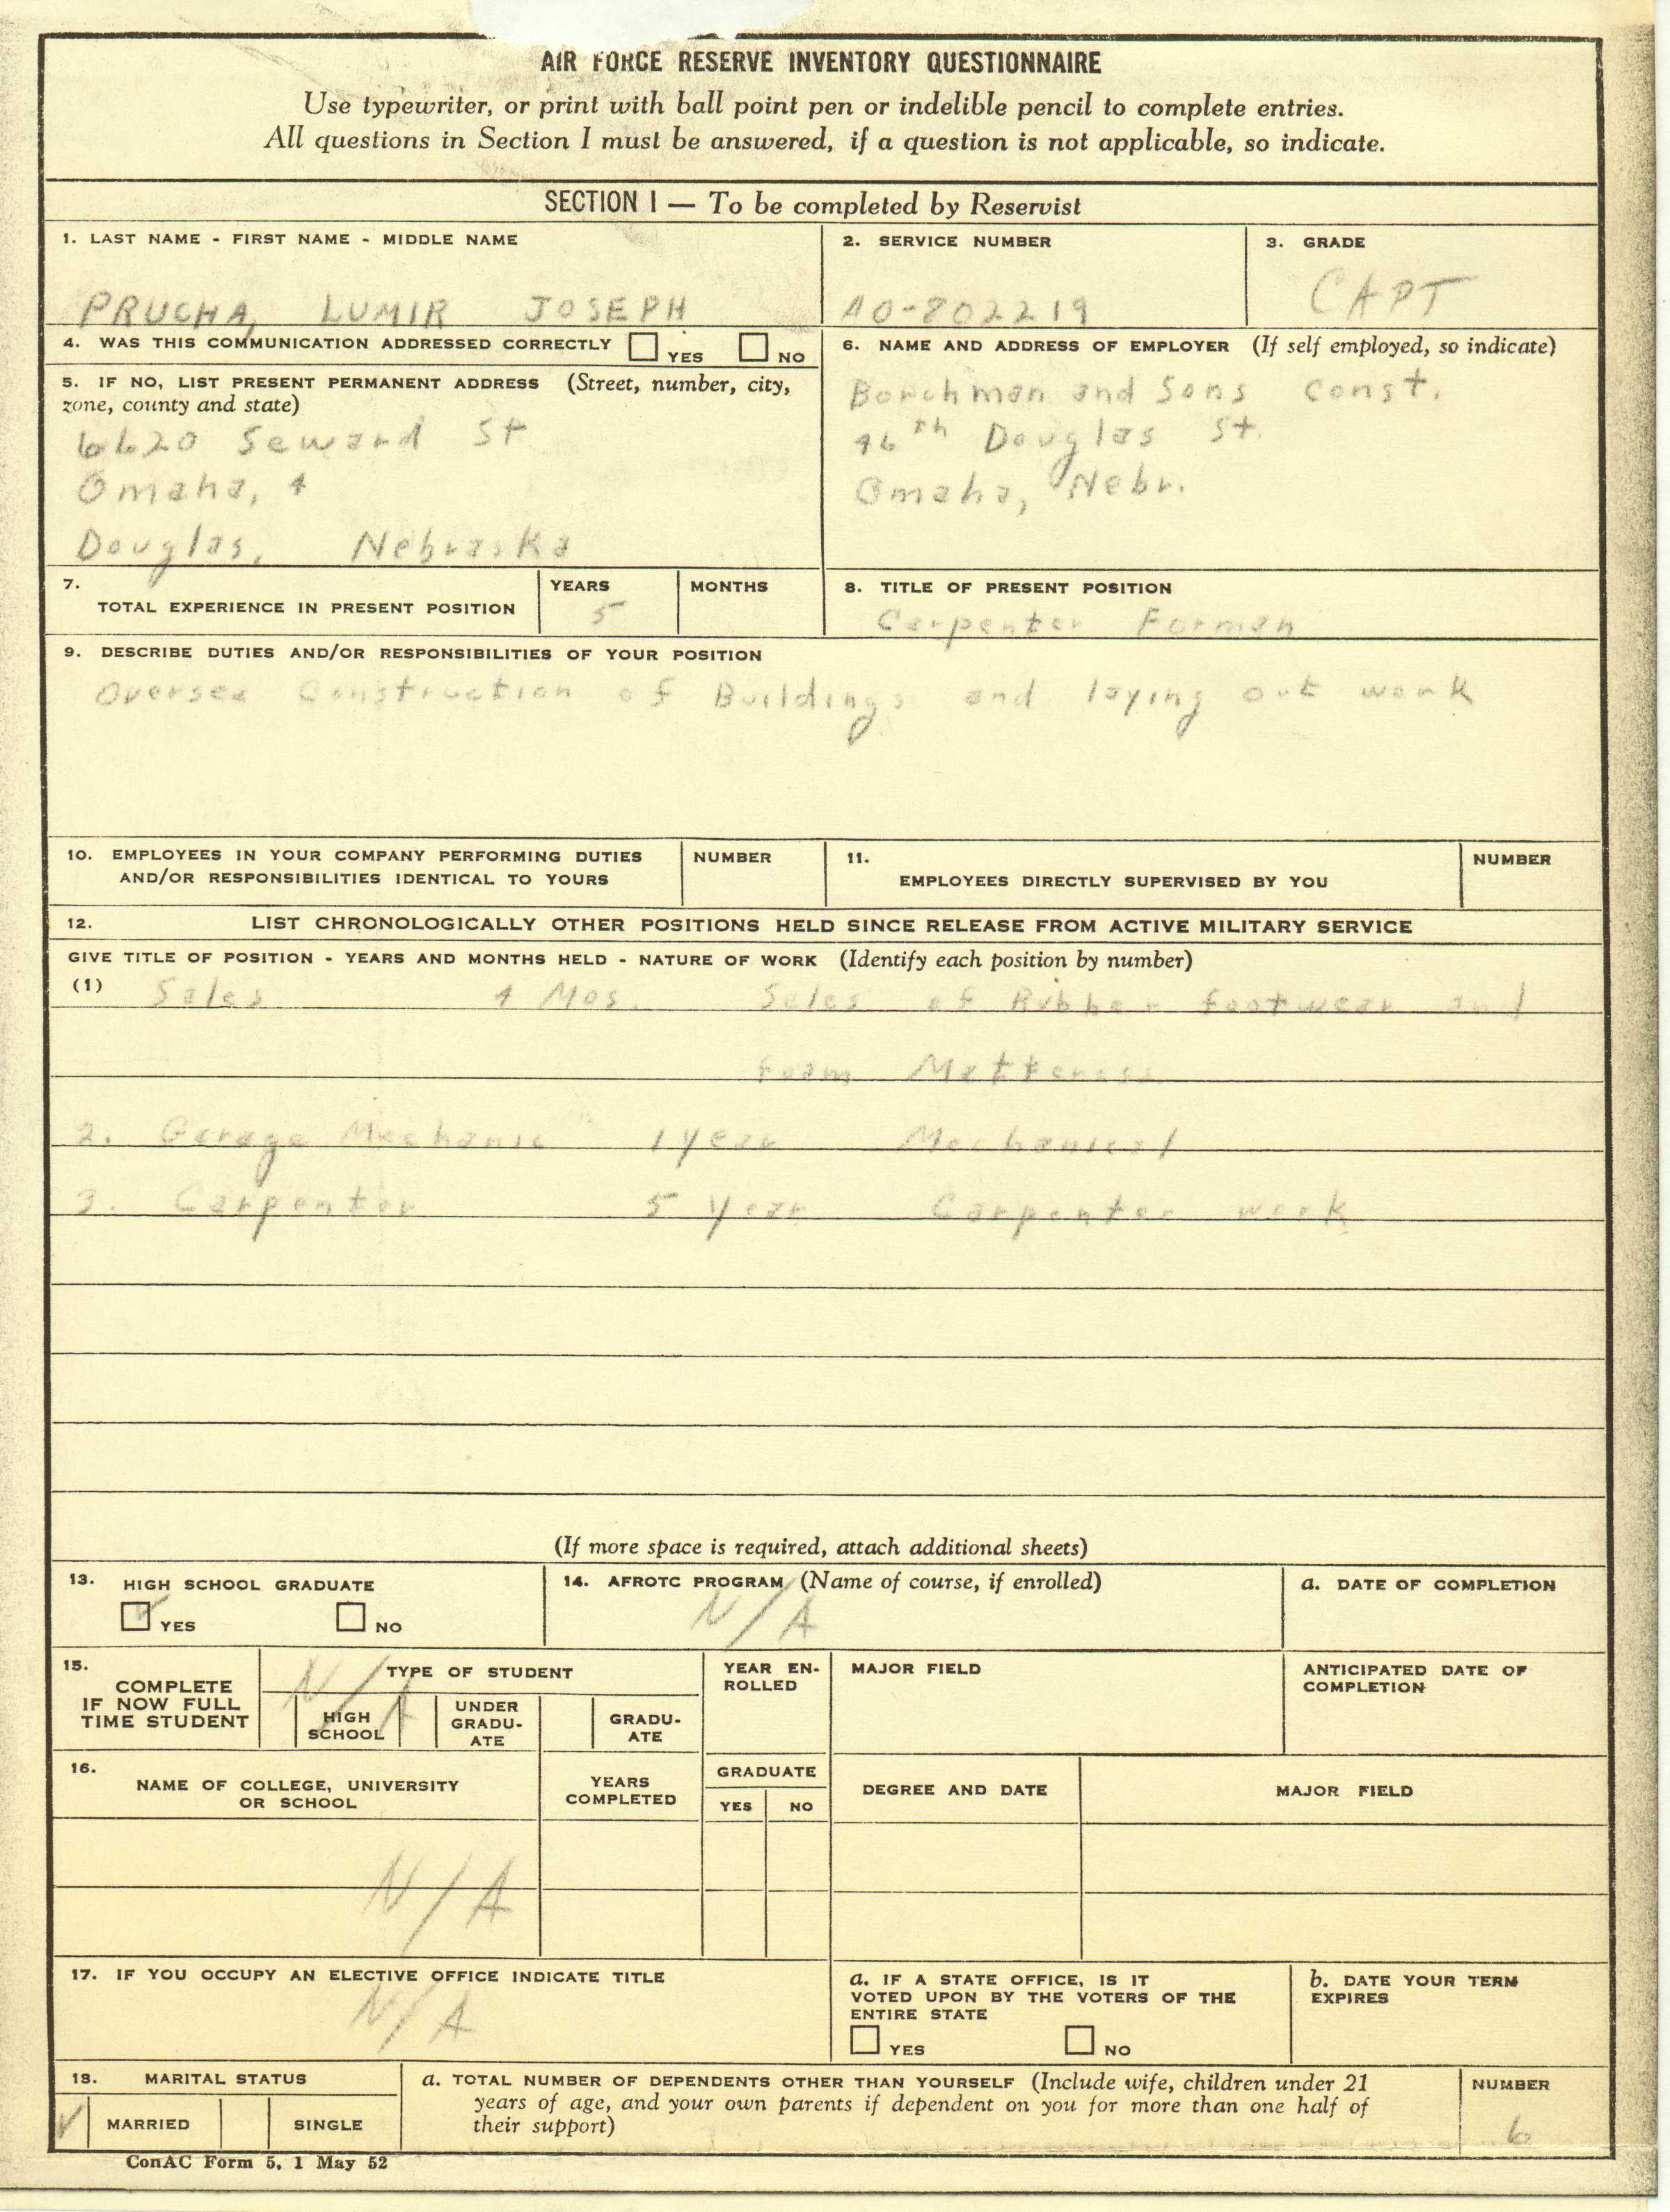 AIR FORCE RESERVE INVENTORY QUESTIONNAIRE
Use typewriter, or print with ball point pen or indelible pencil to complete entries.
All questions in Section I must be answered, if a question is not applicable, so indicate.
SECTION I — To be completed by Reservist
1. LAST NAME - FIRST NAME - MIDDLE NAME
PRUCHA, LUMIR JOSEPH
2. SERVICE NUMBER
AO-802219
3. GRADE
CAPT
4. WAS THIS COMMUNICATION ADDRESSED CORRECTLY YES NO
5. IF NO, LIST PRESENT PERMANENT ADDRESS (Street, number, city,
zone, county and state)
6620 Seward St
Omaha, 4
Douglas, Nebraska
6. NAME AND ADDRESS OF EMPLOYER (If self employed, so indicate)
Borchman and Sons Const.
46th Douglas St.
Omaha, Nebr.
7.
TOTAL EXPERIENCE IN PRESENT POSITION
YEARS
5
MONTHS
8. TITLE OF PRESENT POSITION
Carpenter Forman
9. DESCRIBE DUTIES AND/OR RESPONSIBILITIES OF YOUR POSITION
Oversee Construction of Buildings and laying out work
10. EMPLOYEES IN YOUR COMPANY PERFORMING DUTIES
AND/OR RESPONSIBILITIES IDENTICAL TO YOURS
NUMBER
11.
EMPLOYEES DIRECTLY SUPERVISED BY YOU
NUMBER
12. LIST CHRONOLOGICALLY OTHER POSITIONS HELD SINCE RELEASE FROM ACTIVE MILITARY SERVICE
GIVE TITLE OF POSITION - YEARS AND MONTHS HELD - NATURE OF WORK (Identify each position by number)
(1) Sales 4 Mos. Sales of Rubber footwear and
foam
2. Garage Mechanic 1 year Mechanical
3. Carpenter 5 Year Carpenter work
(If more space is required, attach additional sheets)
13. HIGH SCHOOL GRADUATE
YES NO
14. AFROTC PROGRAM (Name of course, if enrolled)
N/A
a. DATE OF COMPLETION
15.
COMPLETE
IF NOW FULL
TIME STUDENT
N/A
TYPE OF STUDENT
HIGH
SCHOOL
UNDER
GRADU-
ATE
GRADU-
ATE
YEAR EN-
ROLLED
MAJOR FIELD
ANTICIPATED DATE OF
COMPLETION
16.
NAME OF COLLEGE, UNIVERSITY
OR SCHOOL
YEARS
COMPLETED
GRADUATE
YES NO
DEGREE AND DATE
MAJOR FIELD
N/A
17. IF YOU OCCUPY AN ELECTIVE OFFICE INDICATE TITLE
N/A
a. IF A STATE OFFICE, IS IT
VOTED UPON BY THE VOTERS OF THE
ENTIRE STATE
YES NO
b. DATE YOUR TERM
EXPIRES
18. MARITAL STATUS
MARRIED SINGLE
a. TOTAL NUMBER OF DEPENDENTS OTHER THAN YOURSELF (Include wife, children under 21
years of age, and your own parents if dependent on you for more than one half of
their support)
NUMBER
6
ConAC Form 5, 1 May 52